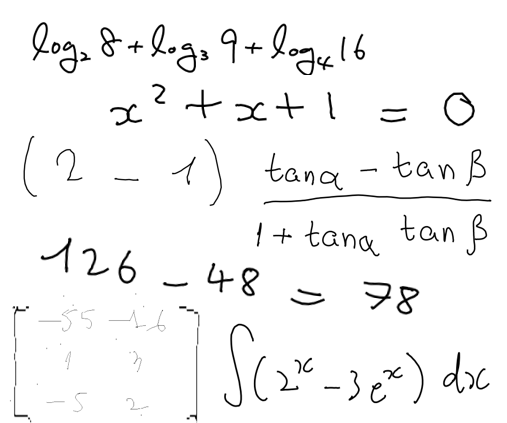 log₂ 8 + log₃ 9 + log₄ 16
x² + x + 1 = 0
(2 - 1)
tanα - tan β
1 + tanα tan β
126 - 48 = 78
[-55 -26
1 3
-5 2]
∫(2ˣ - 3eˣ) dx